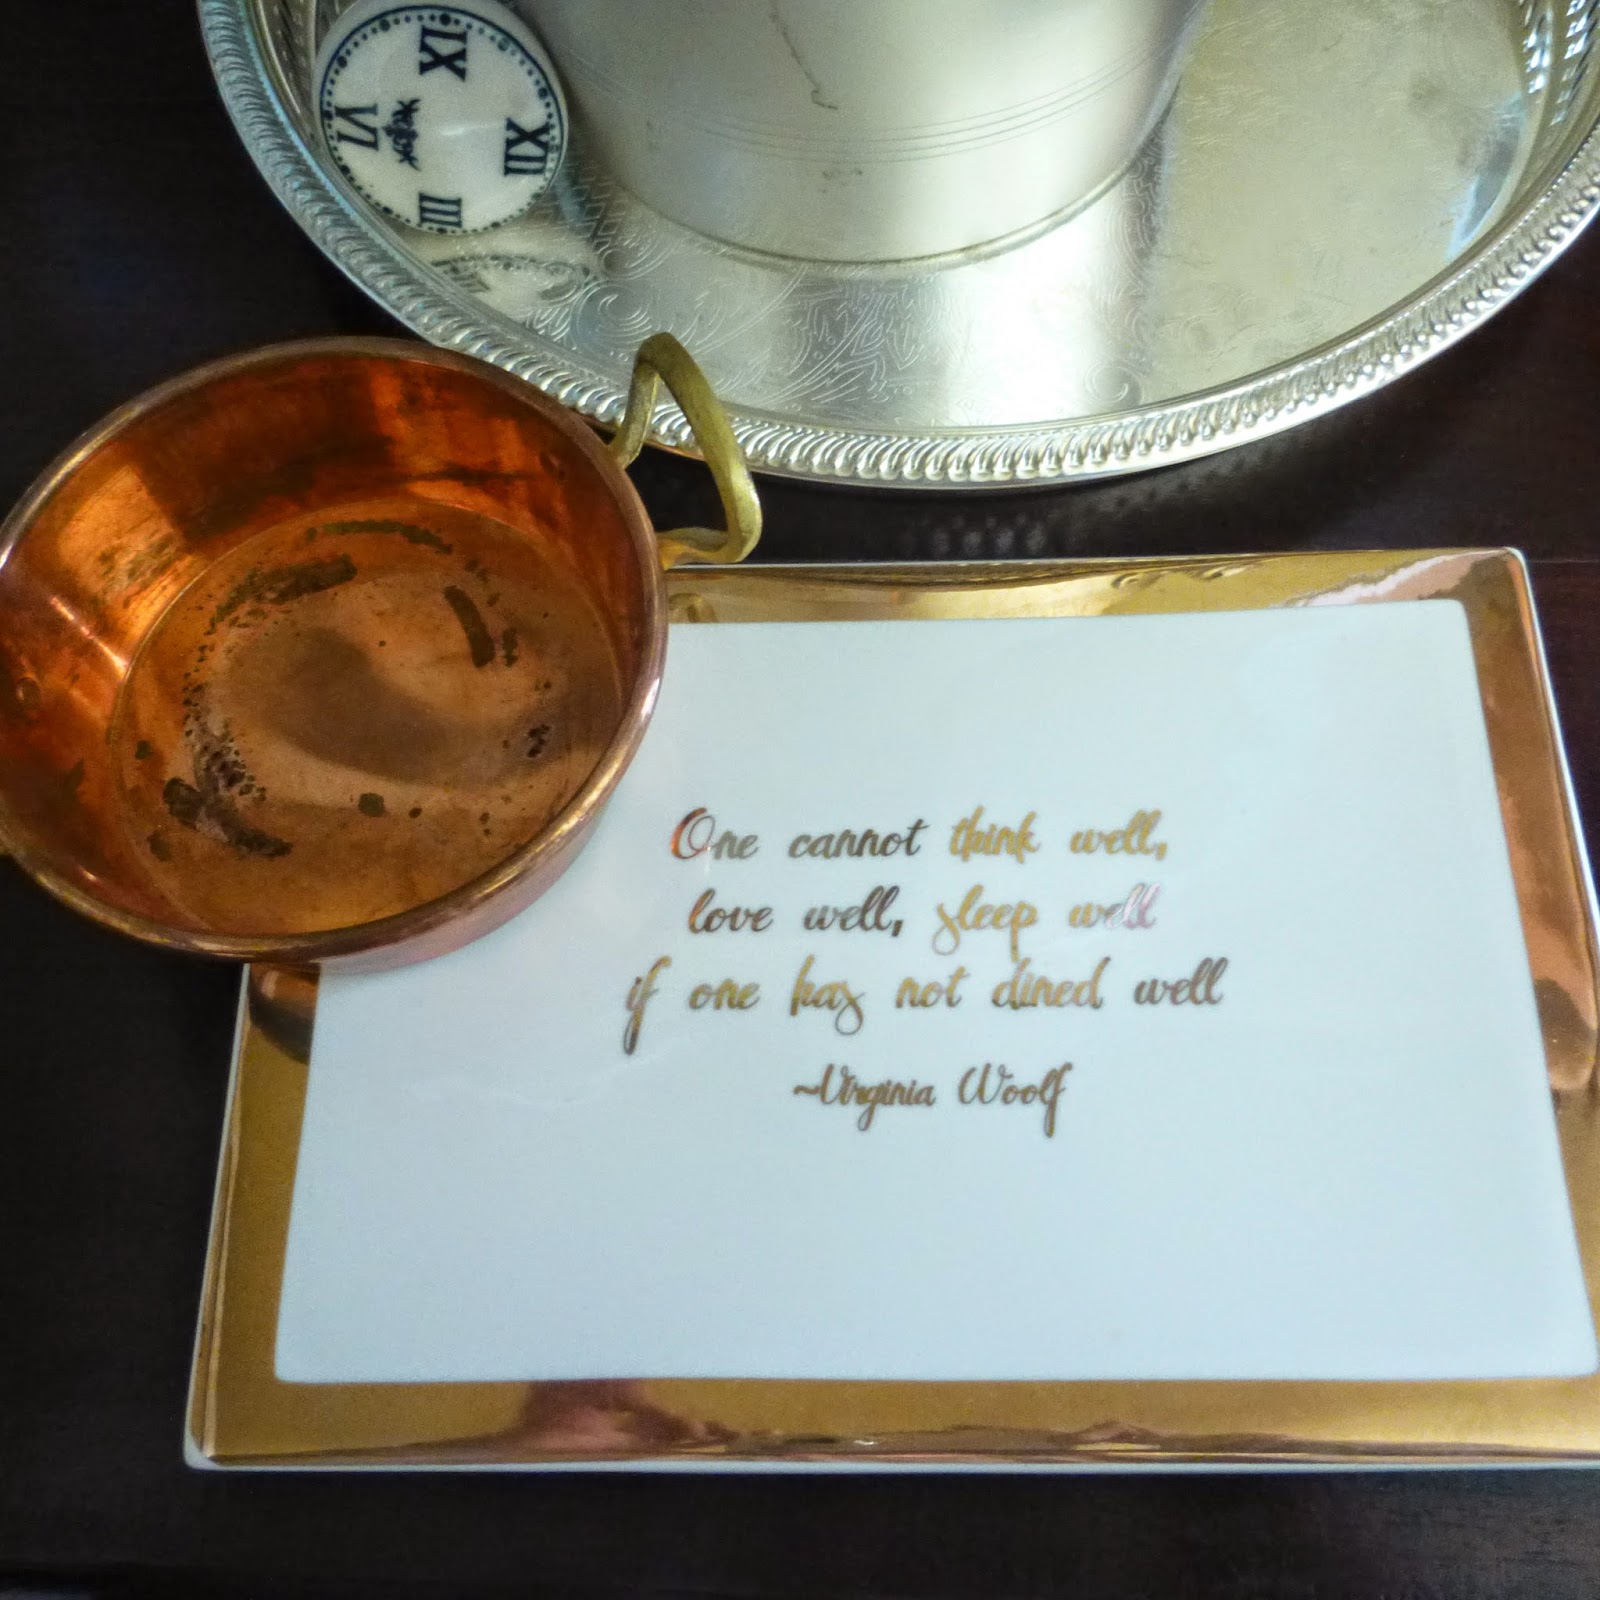 IX
XII
VI
III
One cannot think well,
love well, sleep well
if one has not dined well
~Virginia Woolf